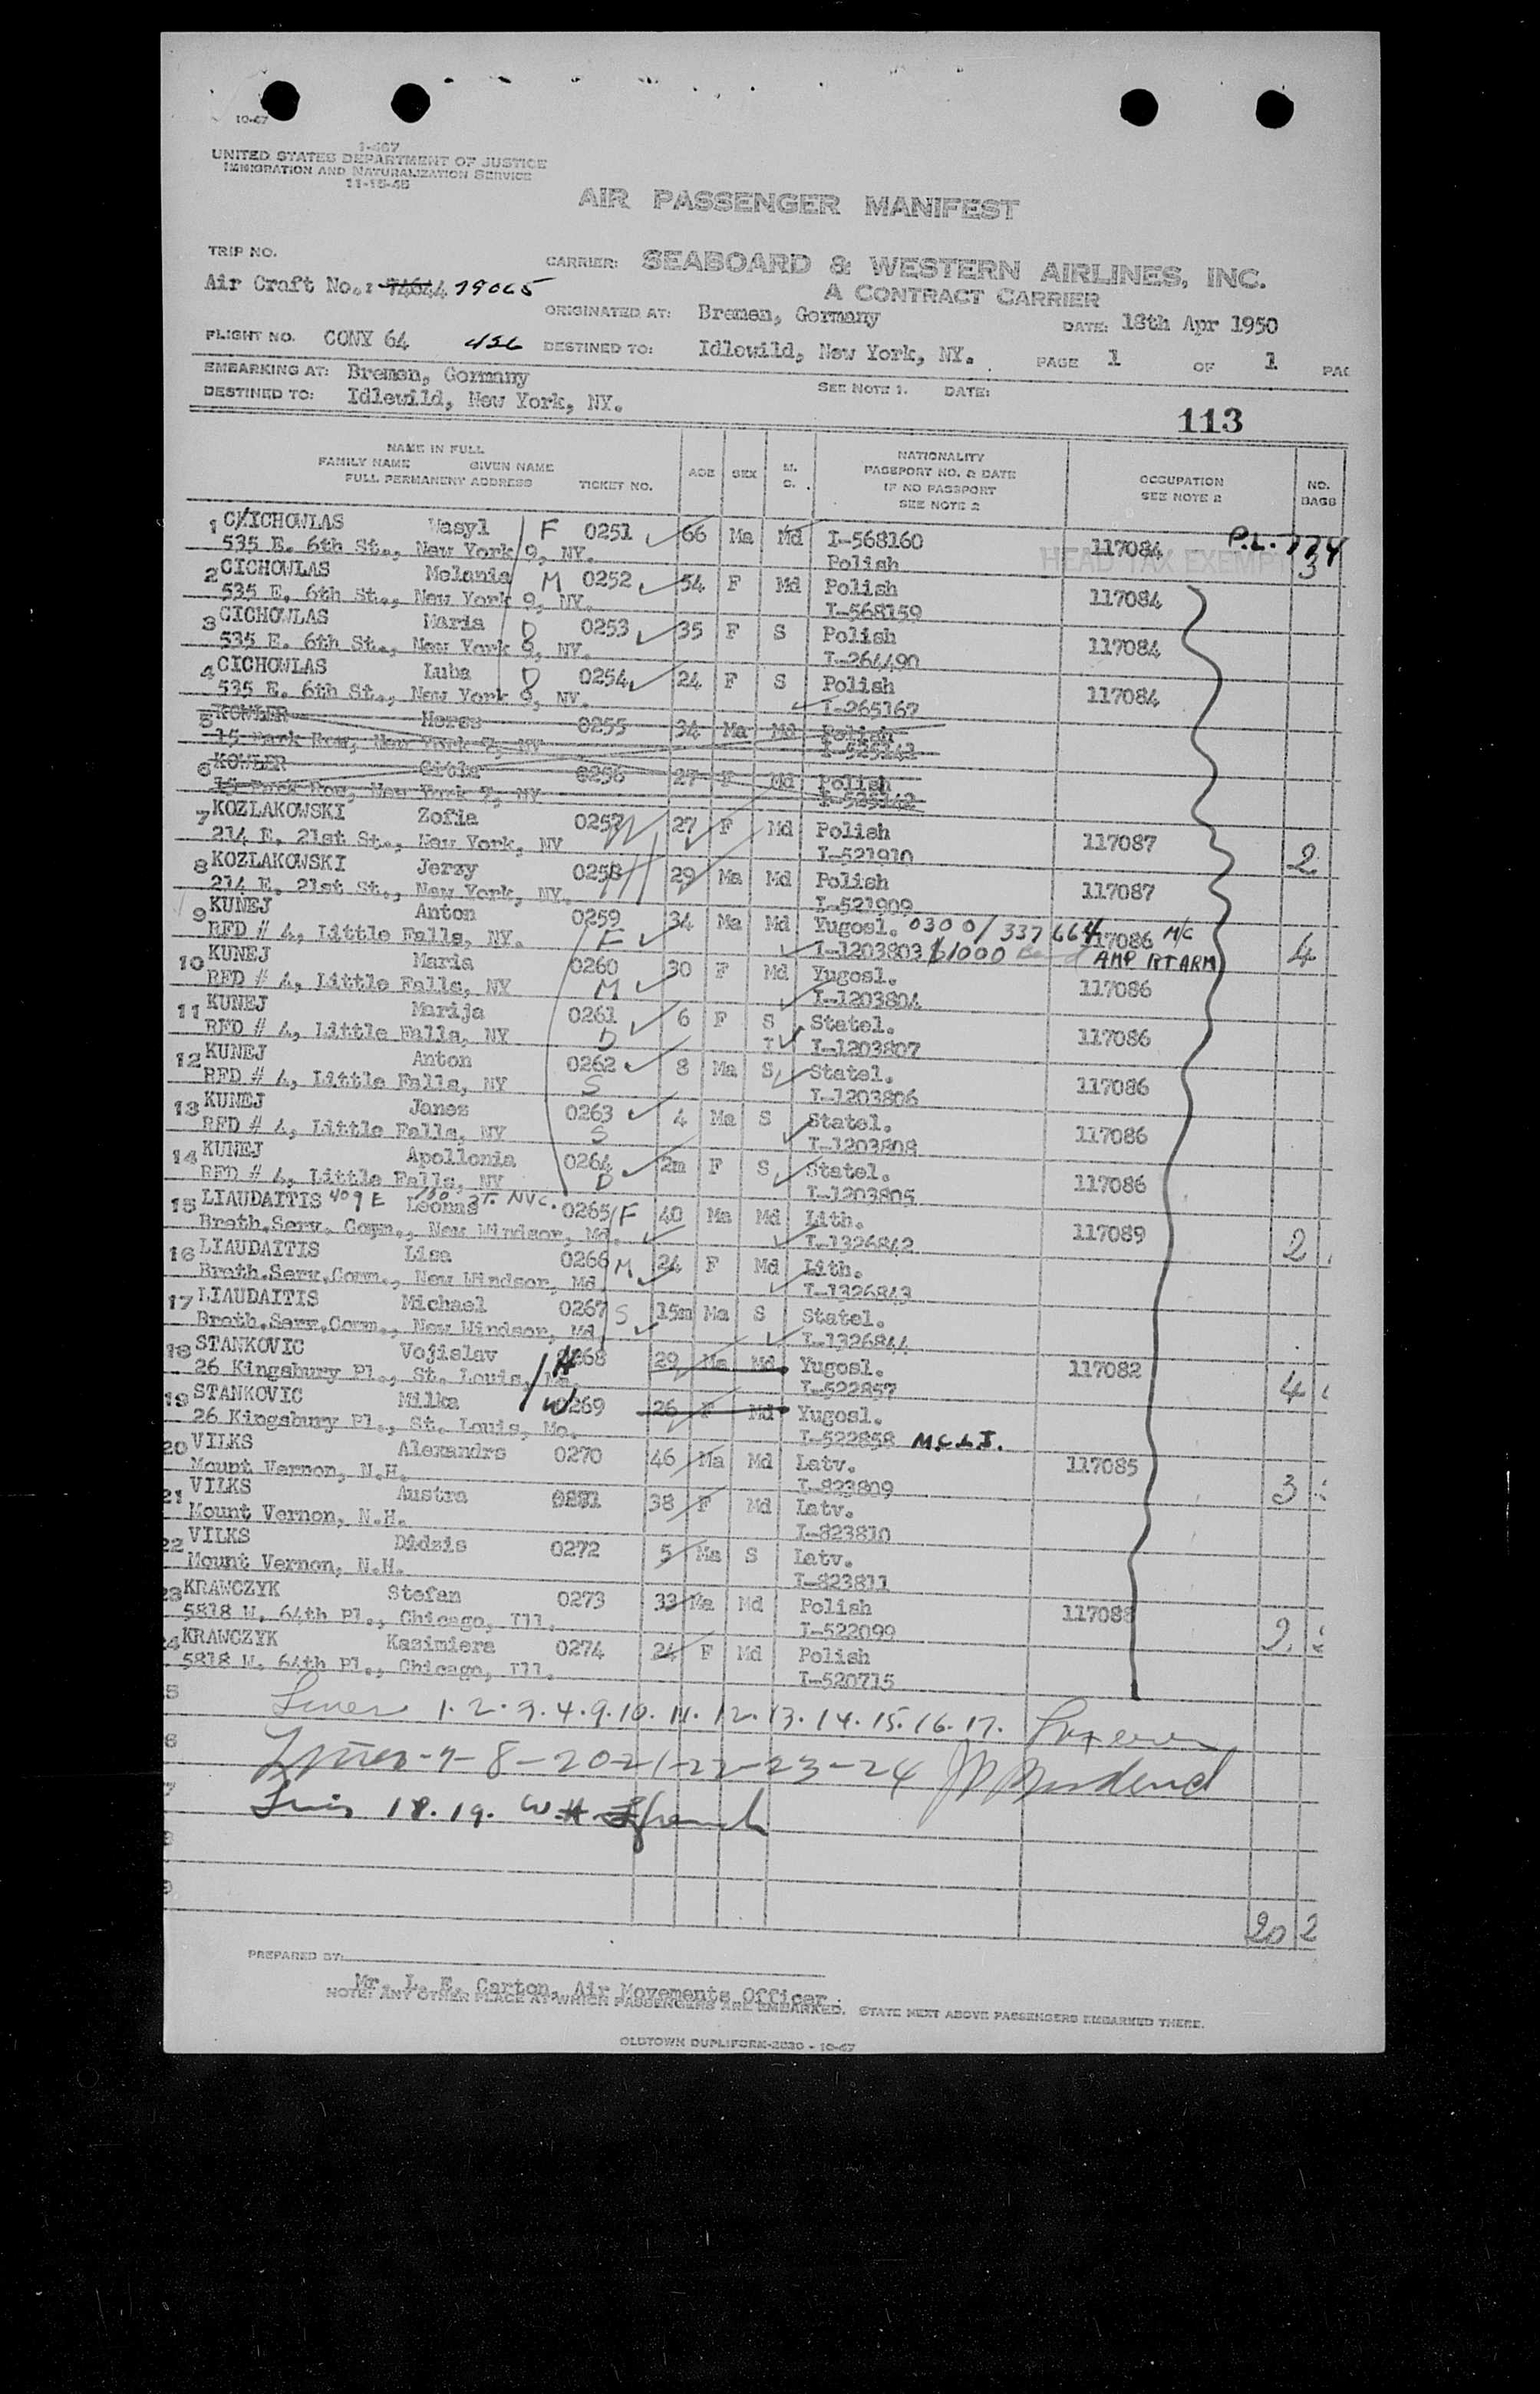 10-47
1-467
UNITED STATES DEPARTMENT OF JUSTICE
IMMIGRATION AND NATURALIZATION SERVICE
11-15-48
AIR PASSENGER MANIFEST
TRIP NO.
CARRIER: SEABOARD & WESTERN AIRLINES, INC.
A CONTRACT CARRIER
Air Craft No.: 79065
ORIGINATED AT: Bremen, Germany DATE: 18th Apr 1950
FLIGHT NO. CONY 64 DESTINED TO: Idlewild, New York, NY. PAGE 1 OF 1 PAG
EMBARKING AT: Bremen, Germany SEE NOTE 1. DATE:
DESTINED TO: Idlewild, New York, NY.
113
NAME IN FULL
FAMILY NAME GIVEN NAME
FULL PERMANENT ADDRESS TICKET NO.
AGE SEX M. S.
NATIONALITY
PASSPORT NO. & DATE
IF NO PASSPORT
SEE NOTE 2
OCCUPATION
SEE NOTE 2
NO. BAGS
1 CICHOWLAS Wasyl F 0251 66 Ma Md I-568160 117084 P.L. 774
535 E. 6th St., New York 9, NY. Polish HEAD TAX EXEMPT 3
2 CICHOWLAS Melania M 0252 54 F Md Polish 117084
535 E. 6th St., New York 9, NY. I-568159
3 CICHOWLAS Maria D 0253 35 F S Polish 117084
535 E. 6th St., New York 9, NY. I-264490
4 CICHOWLAS Luba D 0254 24 F S Polish 117084
535 E. 6th St., New York 9, NY. I-265167
5 KOWLER 0255 34 Ma Md Polish
15 Park Row, New York 7, NY I-525141
6 KOWLER Gitla 0256 27 F Md Polish
15 Park Row, New York 7, NY I-525142
7 KOZLAKOWSKI Zofia 0257 W 27 F Md Polish 117087
214 E. 21st St., New York, NY I-521910 2
8 KOZLAKOWSKI Jerzy 0258 H 29 Ma Md Polish 117087
214 E. 21st St., New York, NY. I-521909
9 KUNEJ Anton 0259 34 Ma Md Yugosl. 0300/337664 117086 M/C
RFD # 4, Little Falls, NY. F I-1203803 $1000 Bond AMP RT ARM 4
10 KUNEJ Maria 0260 30 F Md Yugosl. 117086
RFD # 4, Little Falls, NY M I-1203804
11 KUNEJ Marija 0261 6 F S Statel. 117086
RFD # 4, Little Falls, NY D I-1203807
12 KUNEJ Anton 0262 8 Ma S Statel. 117086
RFD # 4, Little Falls, NY S I-1203806
13 KUNEJ Janez 0263 4 Ma S Statel. 117086
RFD # 4, Little Falls, NY S I-1203808
14 KUNEJ Apollonia 0264 2m F S Statel. 117086
RFD # 4, Little Falls, NY D I-1203805
15 LIAUDAITIS 409 E Leonas NYC. 0265 F 40 Ma Md Lith. 117089
Breth.Serv. Comm., New Windsor, Md. I-1326842 2
16 LIAUDAITIS Lisa 0266 M 24 F Md Lith.
Breth.Serv.Comm., New Windsor, Md. I-1326843
17 LIAUDAITIS Michael 0267 S 15m Ma S Statel.
Breth.Serv.Comm., New Windsor, Md. I-1326844
18 STANKOVIC Vojislav H 0268 29 Ma Md Yugosl. 117082
26 Kingsbury Pl., St. Louis, Mo. I-522857 4
19 STANKOVIC Milka W 0269 26 F Md Yugosl.
26 Kingsbury Pl., St. Louis, Mo. I-522858 M.C.L.I.
20 VILKS Alexandrs 0270 46 Ma Md Latv. 117085
Mount Vernon, N.H. I-823809 3
21 VILKS Austra 38 F Md Latv.
Mount Vernon, N.H. I-823810
22 VILKS Didzis 0272 5 Ma S Latv.
Mount Vernon, N.H. I-823811
23 KRAWCZYK Stefan 0273 33 Ma Md Polish 117088
5818 W. 64th Pl., Chicago, Ill. I-522099 2
24 KRAWCZYK Kazimiera 0274 24 F Md Polish
5818 W. 64th Pl., Chicago, Ill. I-520715
Lines 1.2.3.4.9.10.11.12.13.14.15.16.17.
Lines-7-8-20-21-22-23-24
Lines 18.19. W.H.
20 2
PREPARED BY:
Mr. L. E. Carton, Air Movements Officer
NOTE: ANY OTHER PLACE AT WHICH PASSENGERS ARE EMBARKED. STATE NEXT ABOVE PASSENGERS EMBARKED THERE.
OLDTOWN DUPLIFORM-2830 - 10-47